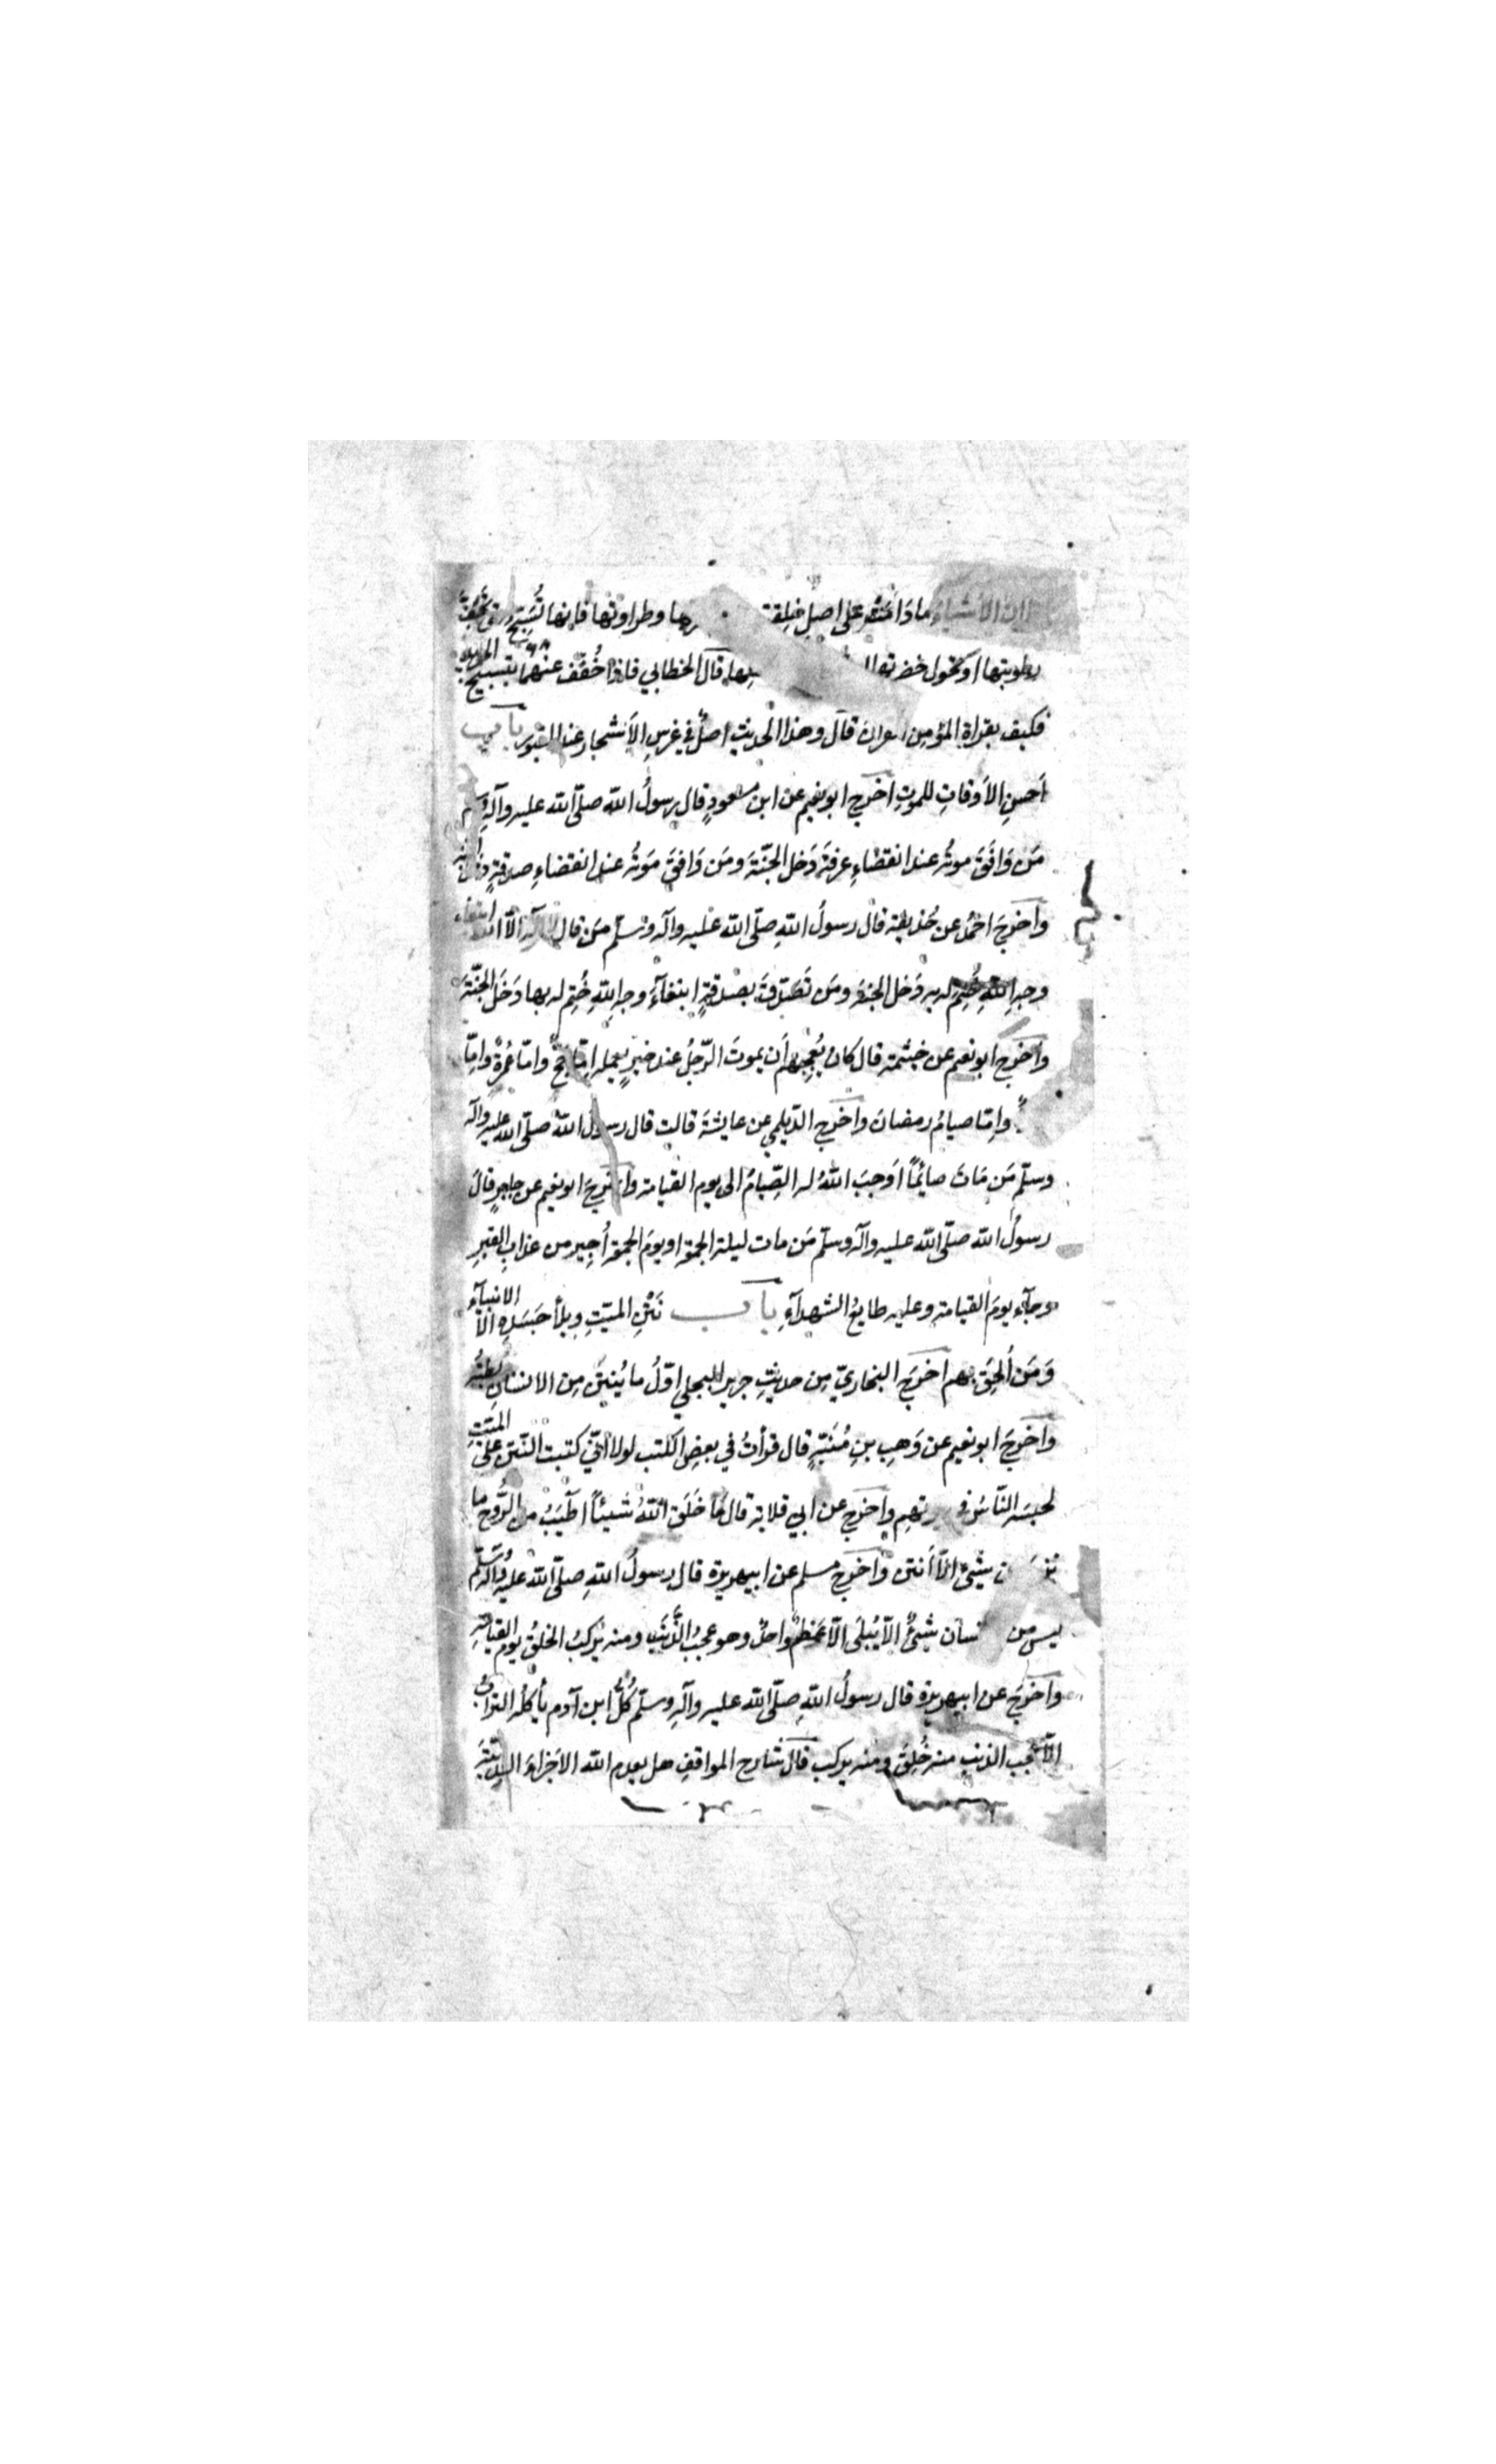 ان الاشياء مادَامَت على اصلِ خلقة رها وطراوتها فانها تُسَبِّحُ حتى تَجِفَّ
رطوبتها او تحُول خضرتها قال الخطابي فاذا خُفِّف عنهما بتسبيح الجريد
فكيف بقراءةِ المؤمِنِ القران قال وهذا الحديث اصلٌ في غرسِ الاَشجار عند القبور باب
اَحسنِ الاَوقاتِ للموتِ اخرج ابو نعيم عن ابن مسعودٍ قال رسولُ الله صلّى الله عليه وآلهٖ وسلم
مَن وَافَقَ موتُه عند انقضاءِ عرفةَ دَخل الجنّةَ ومَن وَافقَ مَوتُه عند انقضاءِ صدقةٍ دخل الجنة
واخرجَ احمدُ عن حُذيفة قال رسولُ اللهِ صلّى الله عليه وآله وسلّم مَن قال لا اله الّا الله ابتغاء
وجهِ اللهِ خُتِمَ له به دَخل الجنةَ ومَن تَصَدّقَ بصدقةٍ ابتغآءَ وجهِ اللهِ خُتِم له بها دَخَل الجنّةَ
واَخرج ابو نعيم عن خيثمة قال كان يُعجِبُهم اَن يموتَ الرّجلُ عند خيرٍ يعمله اِمّا حجٌّ وامّا عُمرةٌ وامّا
وامّا صيامُ رمضانَ واخرج الدّيلمي عن عايشةَ قالت قال رسول اللهُ صلّى الله عليه وآله
وسلّم مَن مَاتَ صائماً اَوجبَ اللهُ له الصِّيامَ الى يوم القيامة واخرجَ ابو نعيم عن جابرٍ قالَ
رسولُ الله صلّى الله عليه وآله وسلّم مَن مات ليلة الجمعة او يومَ الجمعة اُجِير من عذابِ القبرِ
وجآء يومَ القيامة وعليه طابعُ الشهدآءِ باب نَتْنِ الميّتِ وبلاَ جَسَدِهِ الّا الانبيآء
وَمَن اُلحِقَ بهم اخرَج البخاريّ مِن حديثِ جريرٍ البجلي اوّلُ ما يُنتِنُ مِن الانسانِ بطنُه
واخرجَ ابو نعيم عن وَهبِ بنِ مُنَبّهٍ قال قرأتُ في بعضِ الكتب لولا انّي كتبت النّتن على الميّتِ
لحبسَه النّاسُ في بيوتهم واخرج عن ابي قلابة قال ما خَلَق اللهُ شَيئاً اطيَبُ من الرُّوح ما
نزع من شيئٍ الّا اَنتن واخرج مسلم عن ابيهريرة قال رسولُ اللهِ صلّى الله عليه وآله وسلّم
ليس من الانسان شيئٌ الّا يُبلَى الّا عَظمٌ واحدٌ وهو عجبُ الذَّنَبِ ومنه يُركَّبُ الخلقُ يوم القيامةِ
واخرجَ عن ابيهريرة قال رسولُ اللهِ صلّى الله عليه وآلهٖ وسلّم كُلُّ ابن آدم يأكلُه الترابُ
الّا عجب الذنبِ منه خُلِقَ ومنه يركب قال شارح المواقفِ هل يعدم الله الاَجزاءَ البدنيّة